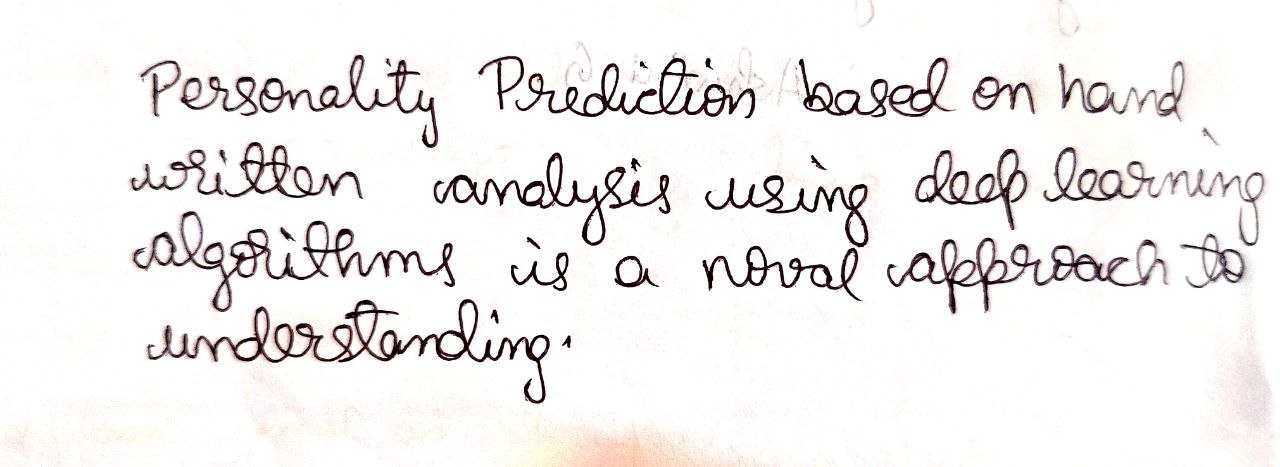 Personality Prediction based on hand
written analysis using deep learning
algorithms is a noval approach to
understanding.